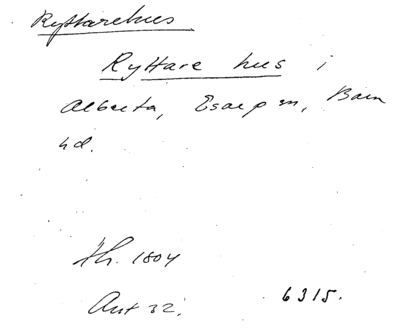 Ryttarehus
Ryttare hus i
Alberta, Esarp sn, Bara
hd.
Hh. 1804
Ant 32.
6315.